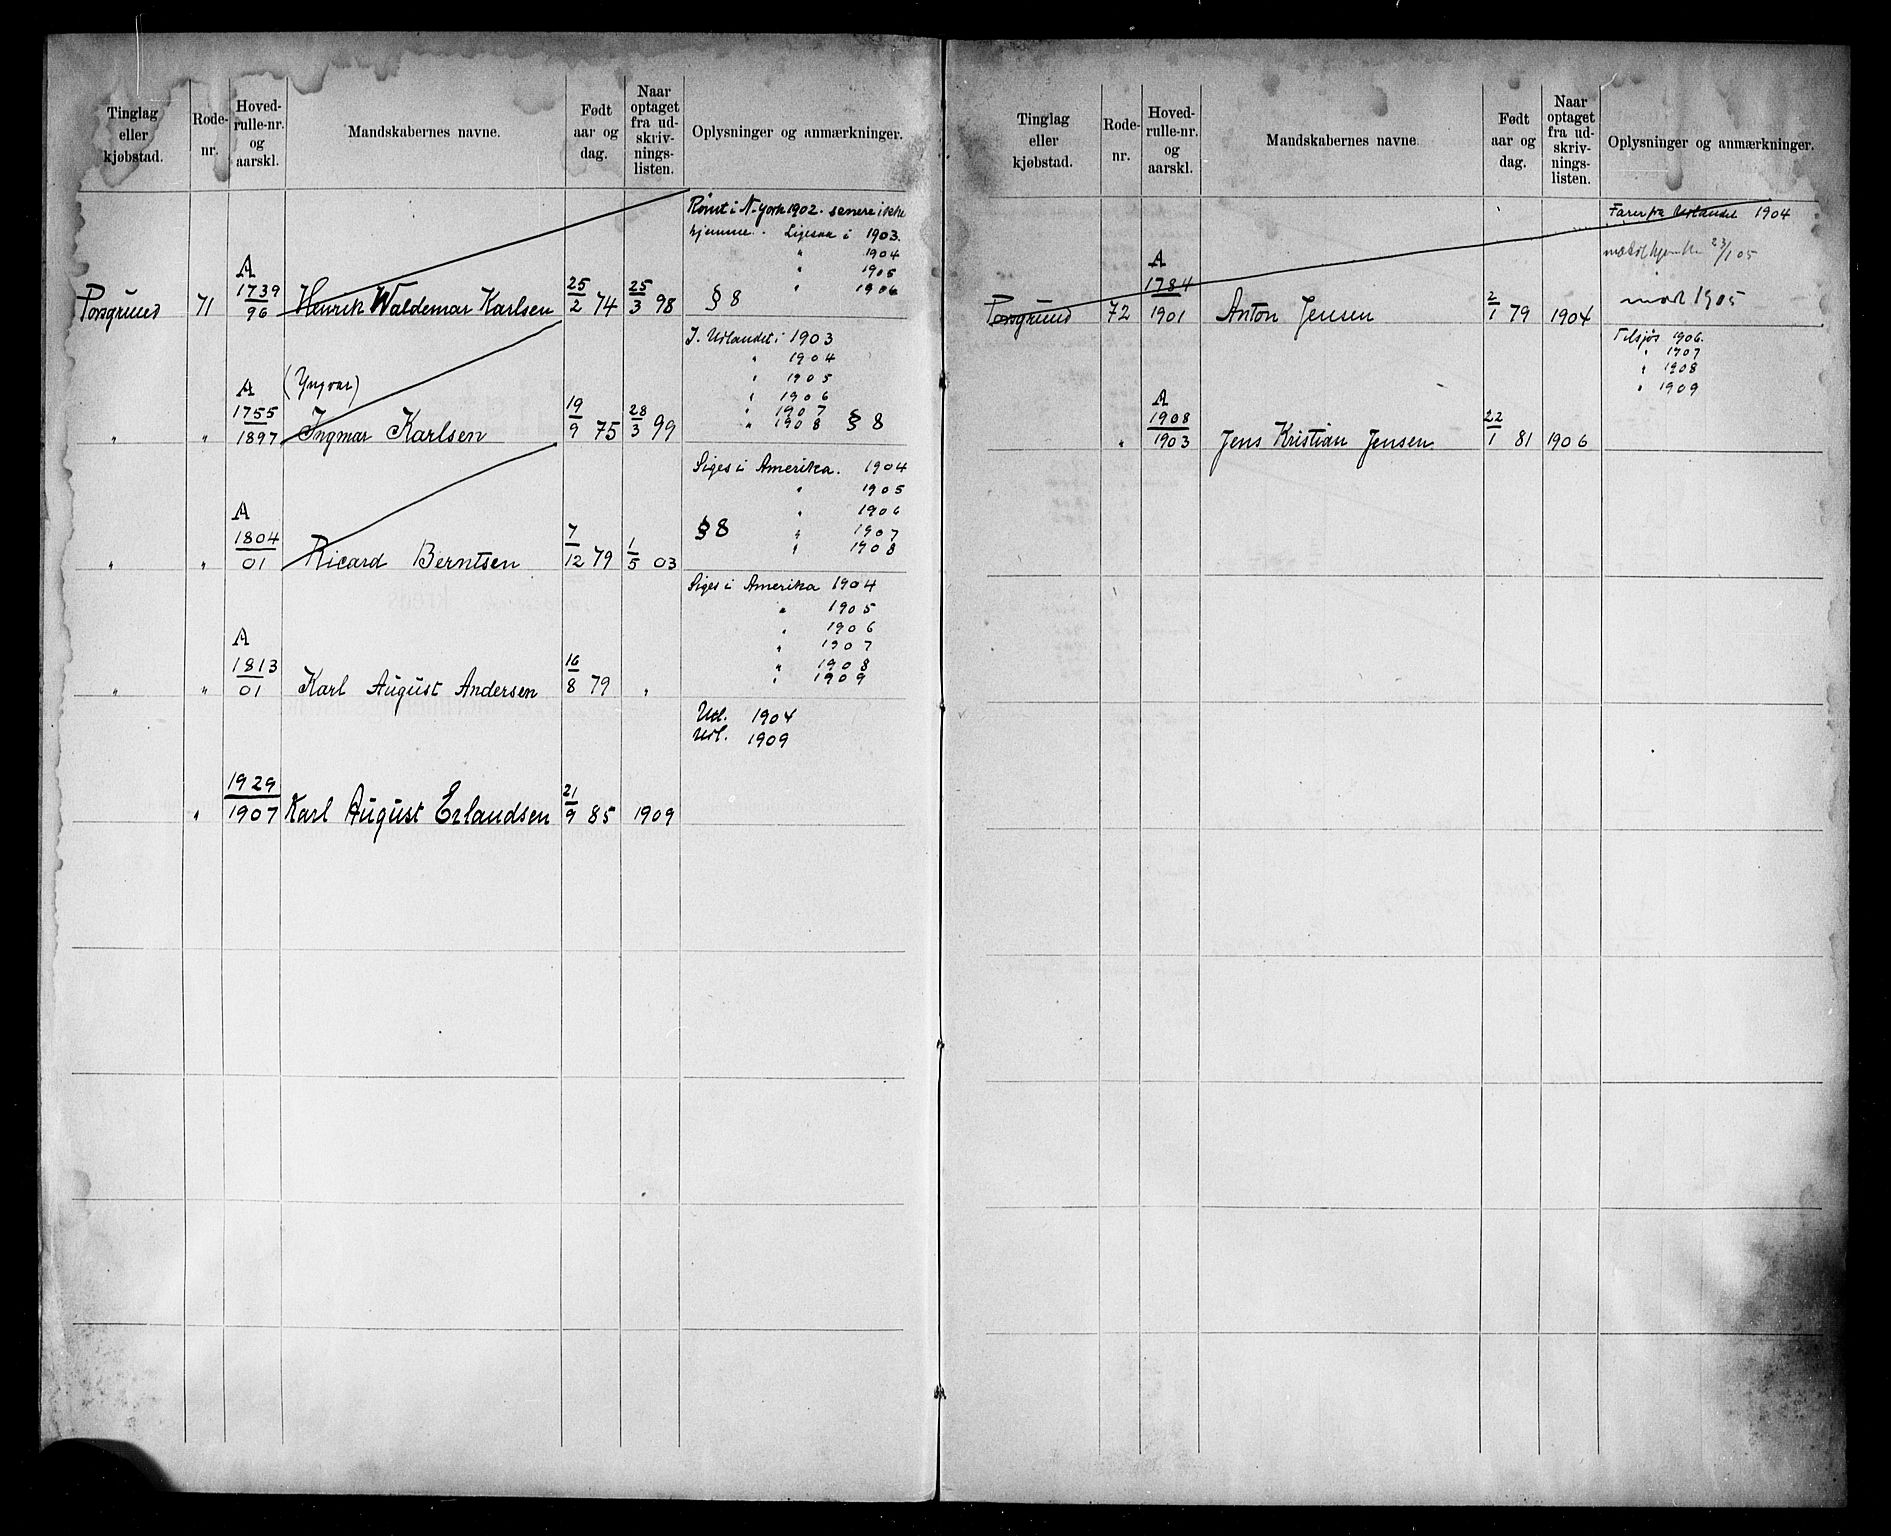 Tinglag eller kjøbstad. Rode-nr. Hoved-rulle-nr. og aarskl. Mandskabernes navne. Født aar og dag. Naar optaget fra ud-skriv-nings-listen. Oplysninger og anmærkninger.
Rømt i N-York 1902. senere ikke
hjemme. Ligesaa i 1903.
" 1904
" 1905
A " 1906
Porsgrund 71 1739/96 Henrik Waldemar Karlsen 25/2 74 25/3 98 § 8
I. Udlandet i 1903
" 1904
(Yngvar) " 1905
A " 1906
" 1907
" " 1755/1897 Ingmar Karlsen 19/9 75 28/3 99 " 1908 § 8
Siges i Amerika. 1904
" 1905
A " 1906
§ 8 " 1907
" " 1804/01 Ricard Berntsen 7/12 79 1/5 03 " 1908
Siges i Amerika 1904
" 1905
" 1906
A " 1907
" 1908
" " 1813/01 Karl August Andersen 16/8 79 " " 1909
Udl. 1904
Udl. 1909
" 1929/1907 Karl August Erlandsen 21/9 85 1909
Tinglag eller kjøbstad. Rode-nr. Hoved-rulle-nr. og aarskl. Mandskabernes navne. Født aar og dag. Naar optaget fra ud-skriv-nings-listen. Oplysninger og anmærkninger.
Farer fra Udlandet 1904
A 23/1 05
Porsgrund 72 1784/1901 Anton Jensen 2/1 79 1904 mød 1905
Tilsjøs 1906.
" 1907
" 1908
A " 1909
" 1908/1903 Jens Kristian Jensen 22/1 81 1906